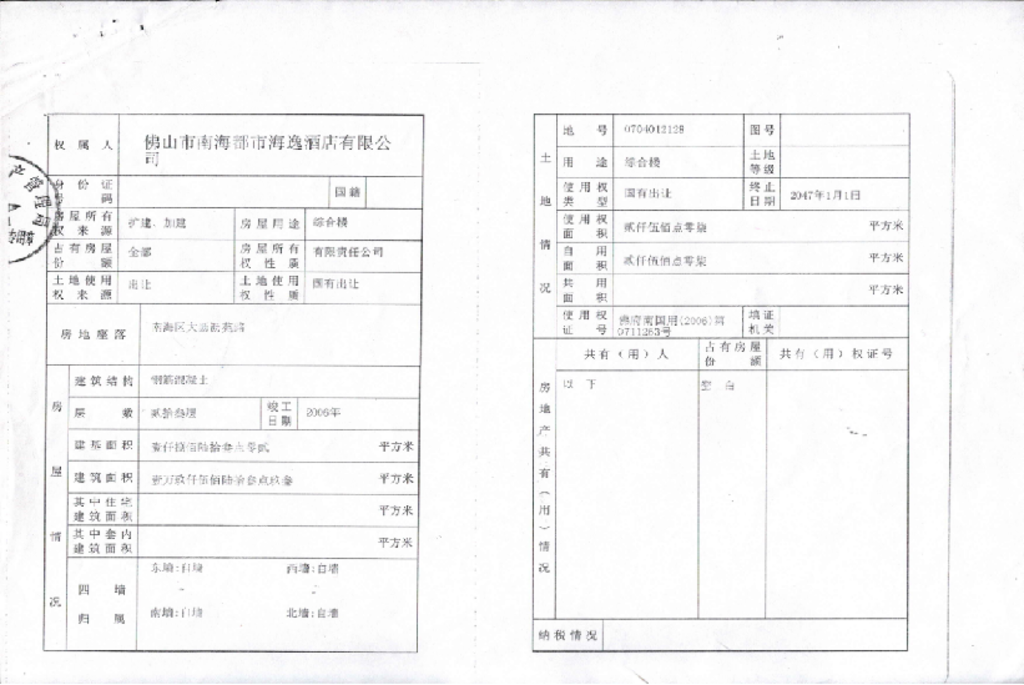 权属人 佛山市南海都市海逸酒店有限公
司
身份证
号码
国籍
房屋所有
权来源 扩建、加建 房屋用途 综合楼
占有房屋
份额 全部 房屋所有
权性质 有限责任公司
土地使用
权来源 出让 土地使用
权性质 国有出让
房地座落 南海区大沥
房屋情况
建筑结构 钢筋混凝土
层数 贰拾叁层 竣工
日期 2006年
建基面积 壹仟捌佰陆拾叁点零贰 平方米
建筑面积 壹万玖仟伍佰陆拾叁点玖叁 平方米
其中住宅
建筑面积 平方米
其中套内
建筑面积 平方米
四墙
归属
东墙:自墙 西墙:自墙
南墙:自墙 北墙:自墙
产管理局
土地情况
地号 0704012128 图号
用途 综合楼 土地
等级
使用权
类型 国有出让 终止
日期 2047年1月1日
使用权
面积 贰仟伍佰点零柒 平方米
自用
面积 贰仟伍佰点零柒 平方米
共用
面积 平方米
使用权
证号 佛府南国用(2006)第
0711263号 填证
机关
房地产共有(用)情况
共有(用)人 占有房屋
份额 共有(用)权证号
以下 空白
纳税情况